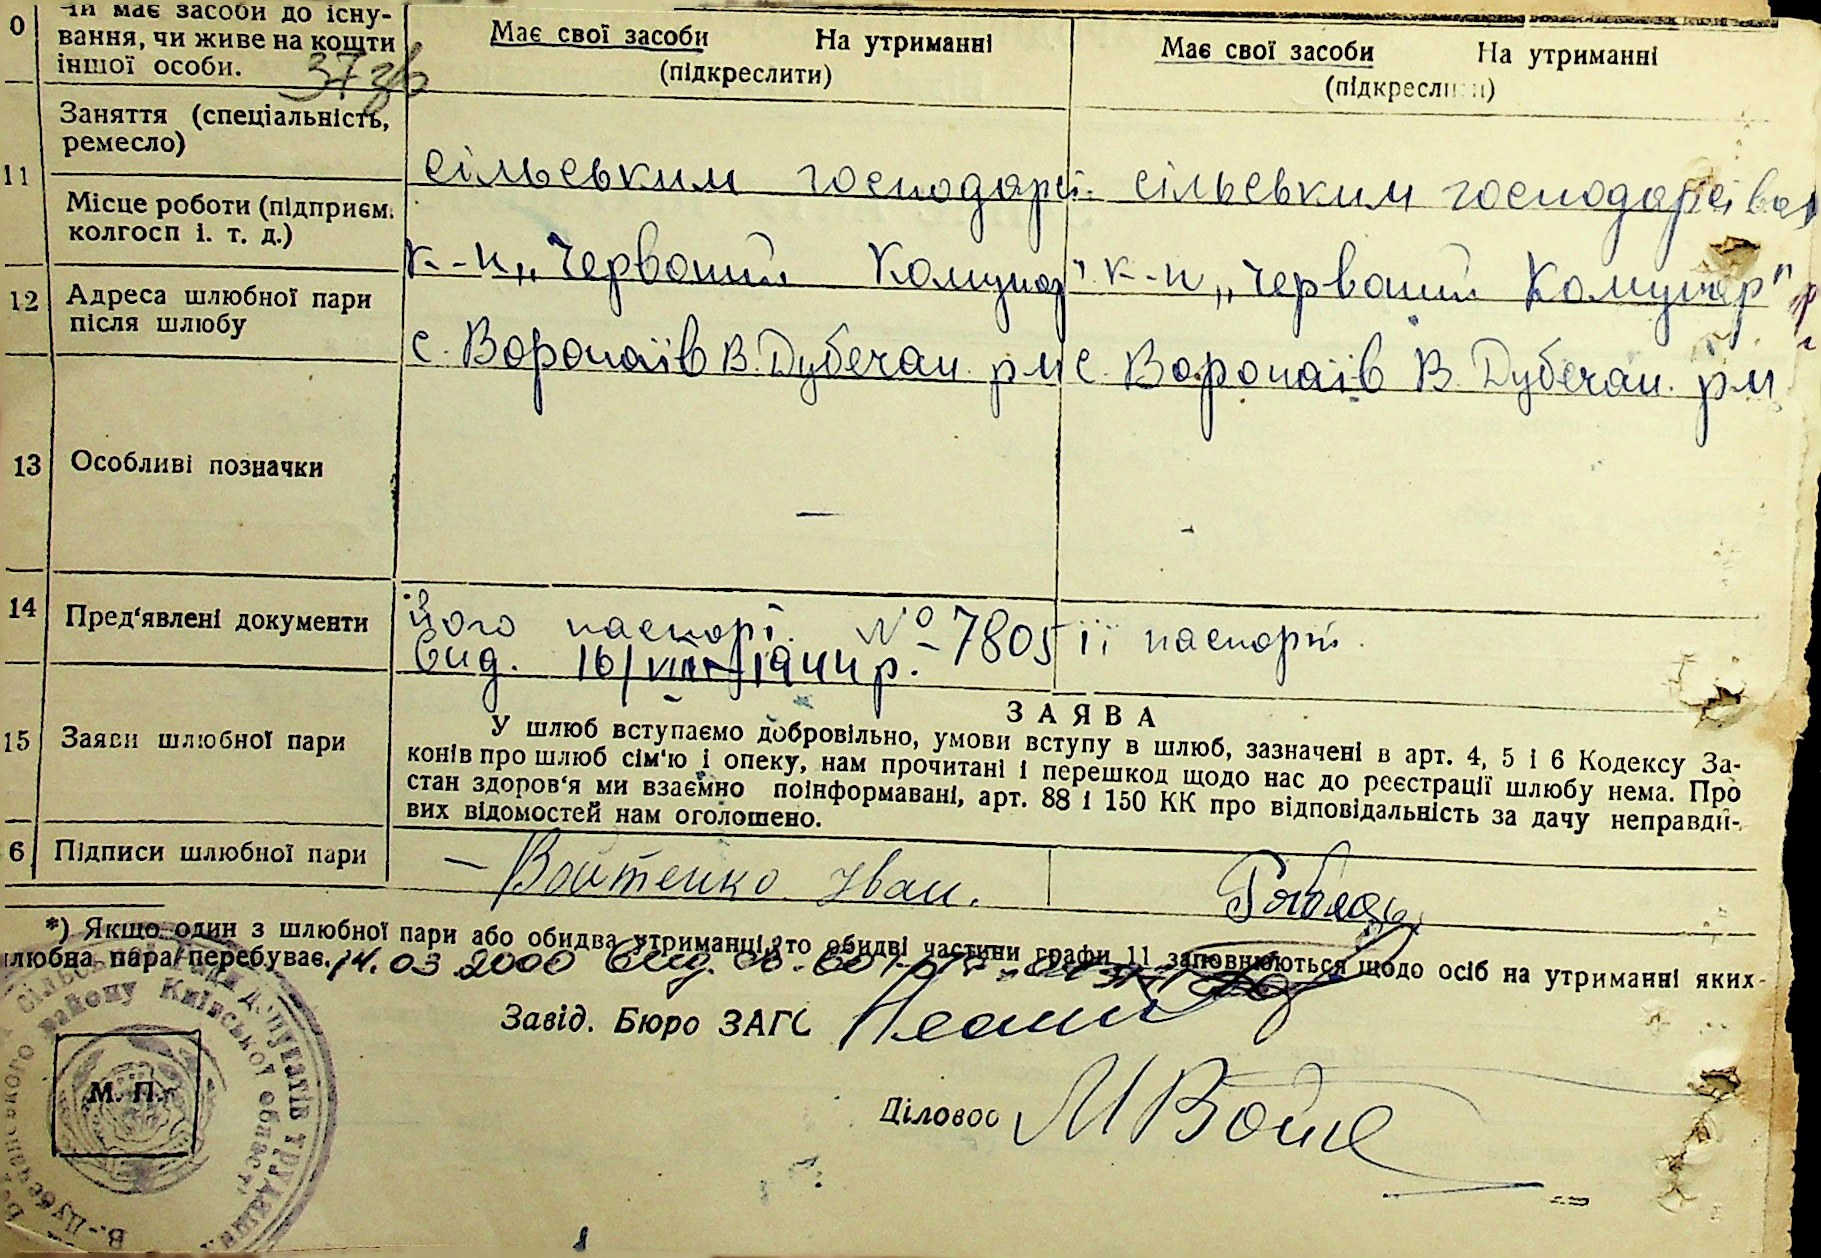 0 Чи має засоби до існу-
вання, чи живе на кошти
іншої особи.
Має свої засоби На утриманні
(підкреслити)
Має свої засоби На утриманні
(підкреслити)
11 Заняття (спеціальність,
ремесло)
сільським господарс. сільським господарством
Місце роботи (підприєм.
колгосп і. т. д.)
к-п „Червоний Комунар" к-п „Червоний Комунар"
12 Адреса шлюбної пари
після шлюбу
с. Воропаїв В. Дубечан. р-н с. Воропаїв В. Дубечан. р-н
13 Особливі позначки
— -
14 Пред'явлені документи
його паспорт. № 7805 її паспорт.
Вид. 16/VIII-1944 р.
15 Заяви шлюбної пари
ЗАЯВА
У шлюб вступаємо добровільно, умови вступу в шлюб, зазначені в арт. 4, 5 і 6 Кодексу За-
конів про шлюб сім'ю і опеку, нам прочитані і перешкод щодо нас до реєстрації шлюбу нема. Про
стан здоров'я ми взаємно поінформавані, арт. 88 і 150 КК про відповідальність за дачу неправди-
вих відомостей нам оголошено.
6 Підписи шлюбної пари
— Войтенко Іван.
*) Якщо один з шлюбної пари або обидва утриманці, то обидві частини графи 11 заповнюються щодо осіб на утриманні яких
шлюбна пара перебуває.
14.03.2000 Вид.
Завід. Бюро ЗАГС
Діловод
М. П.
району Київської області
Ради депутатів трудящих